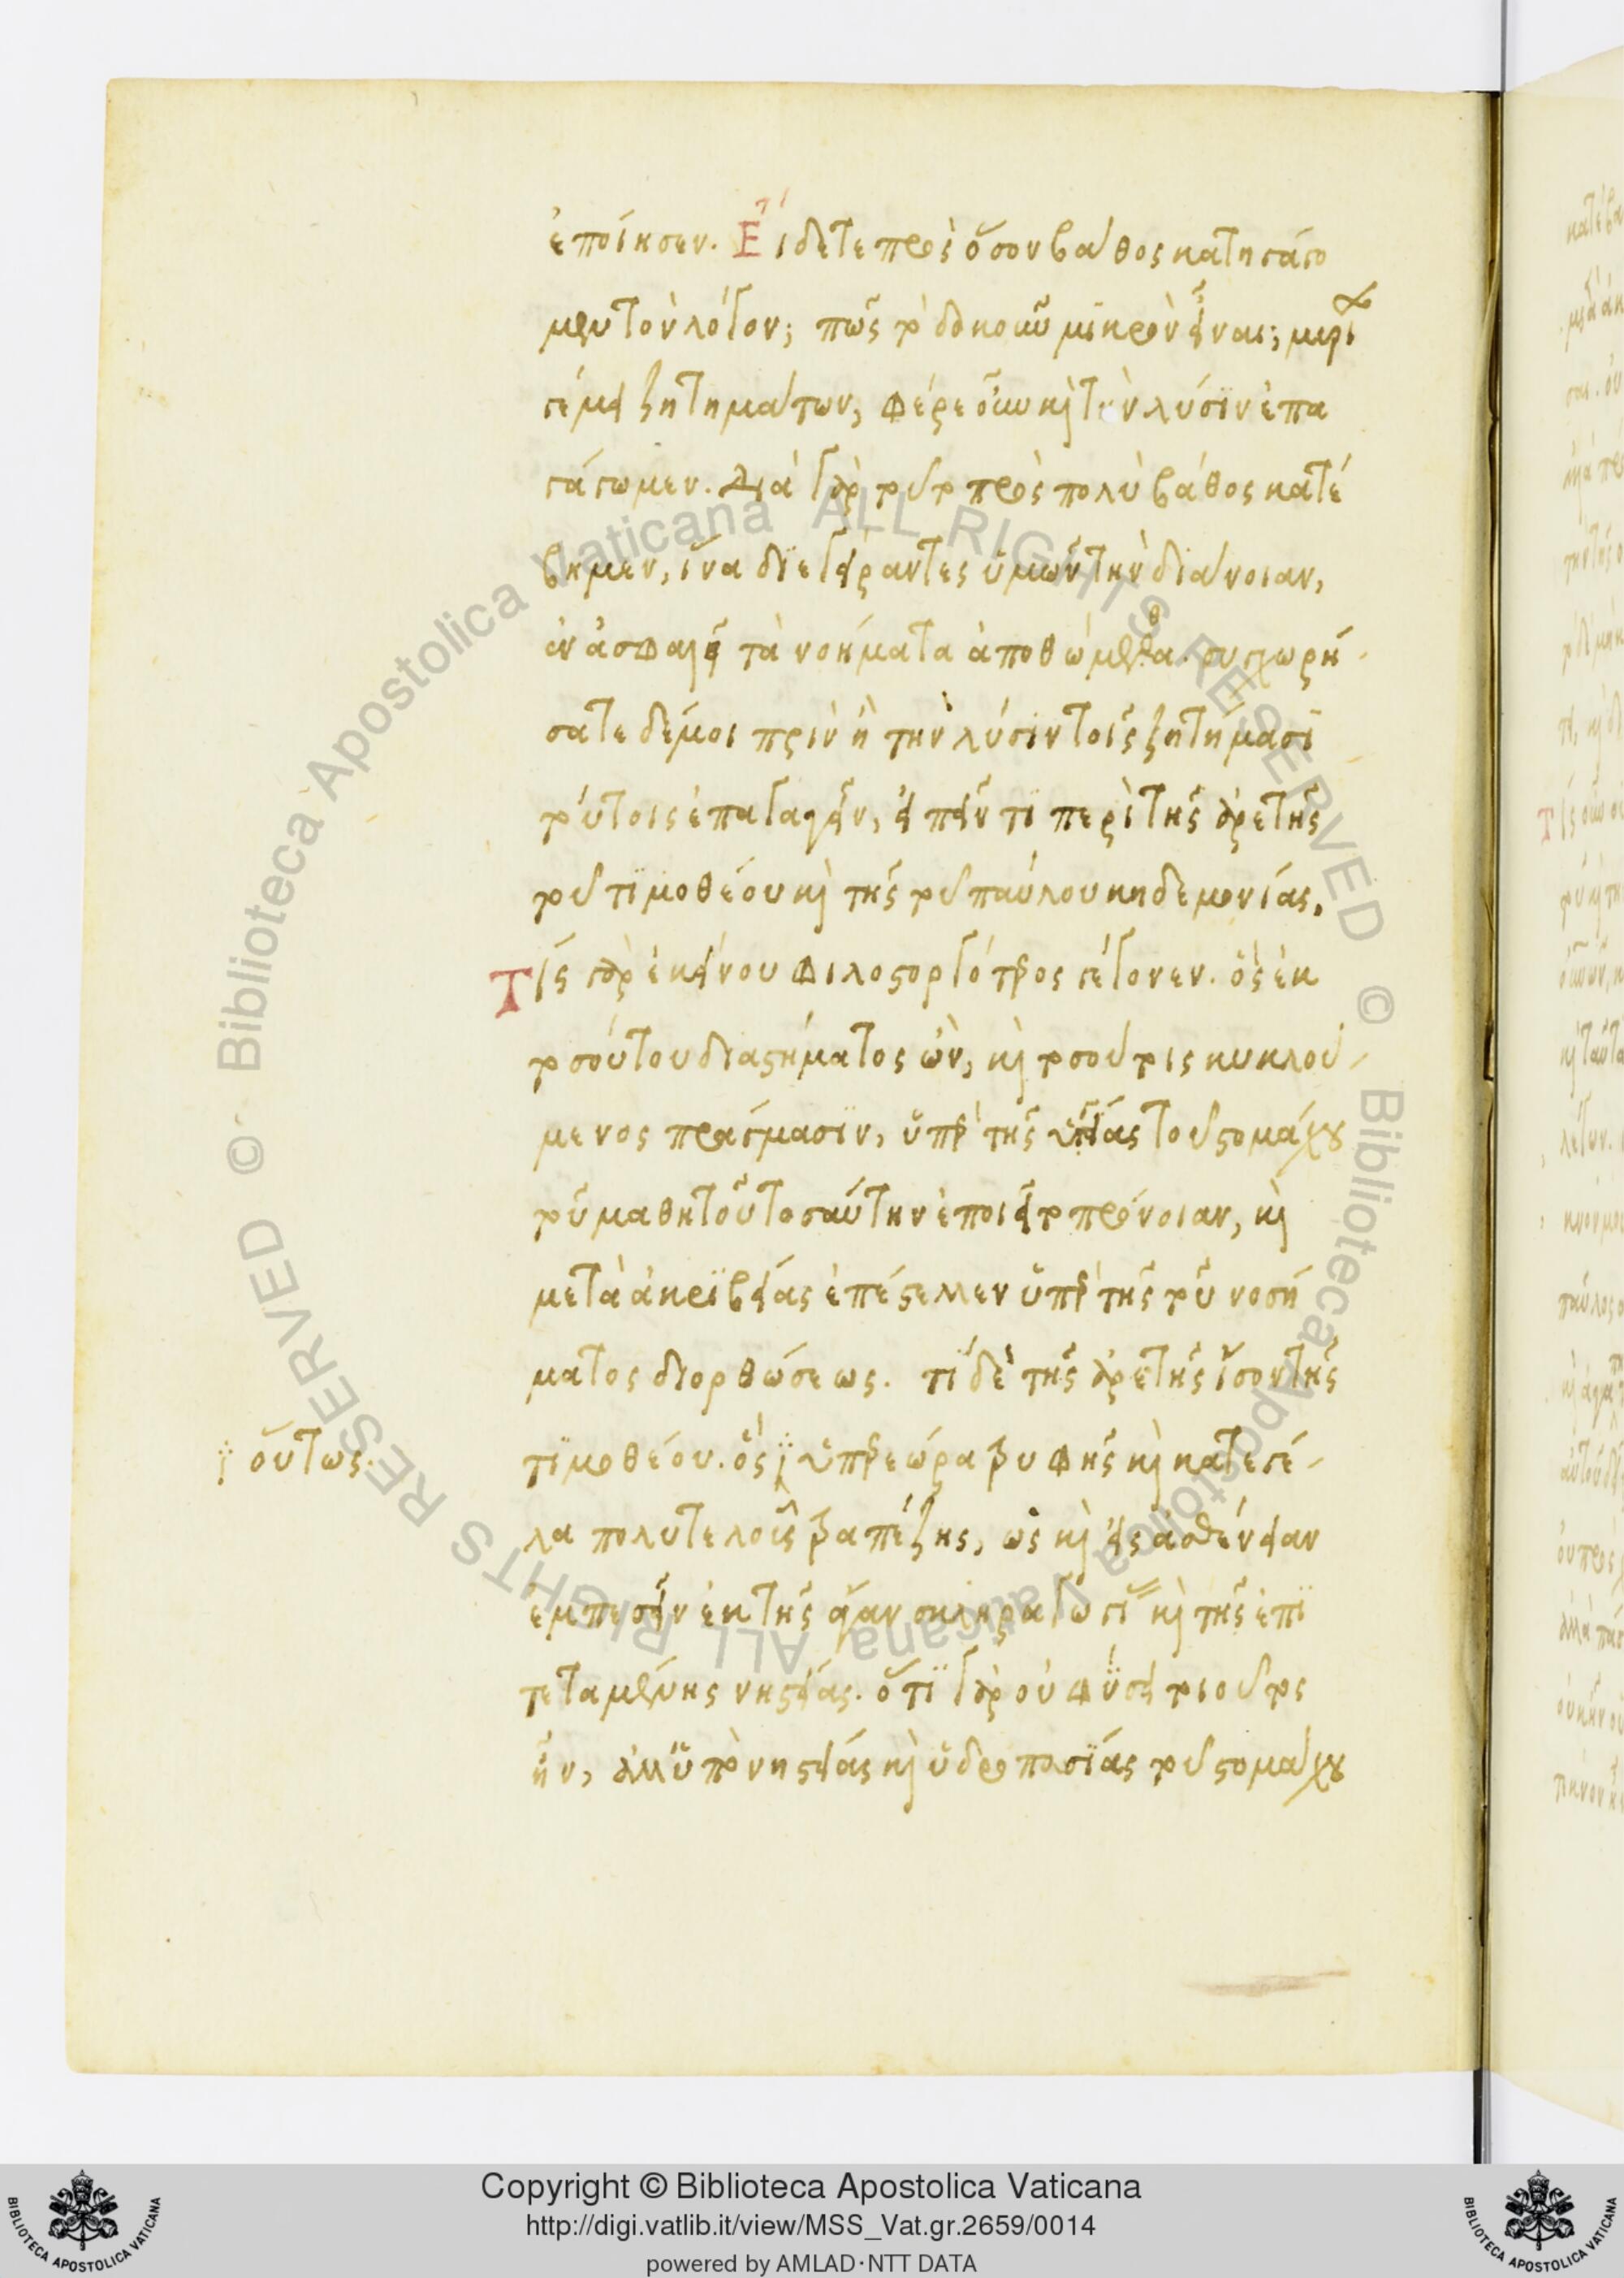 ἐποίησεν. Εἴδετε πρὸς ὅσον βάθος κατηγάγο
μεν τὸν λόγον; πῶς τὸ δοκοῦν μικρὸν εἶναι; μυρί
γέμει ζητημάτων, φέρε οὖν καὶ τὴν λύσιν ἐπα
γάγωμεν. Διὰ γὰρ τοῦτο πρὸς πολὺ βάθος κατέ
βημεν, ἵνα διεγείραντες ὑμῶν τὴν διάνοιαν,
ἐν ἀσφαλεῖ τὰ νοήματα ἀποθώμεθα. συγχωρή-
σατε δέ μοι πρὶν ἢ τὴν λύσιν τοῖς ζητήμασι
τούτοις ἐπαγαγεῖν, εἰπεῖν τι περὶ τῆς ἀρετῆς
τοῦ τιμοθέου καὶ τῆς τοῦ παύλου κηδεμονίας.
Τίς γὰρ ἐκείνου φιλοστοργότερος γέγονεν. ὃς ἐκ
τοσούτου διαστήματος ὢν, καὶ τοσούτοις κυκλού-
μενος πράγμασιν, ὑπὲρ τῆς ὑγείας τοῦ στομάχου
τοῦ μαθητοῦ τοσαύτην ἐποιεῖτο πρόνοιαν, καὶ
μετὰ ἀκριβείας ἐπέστελλεν ὑπὲρ τῆς τοῦ νοσή
ματος διορθώσεως. τί δὲ τῆς ἀρετῆς ἴσον τῆς
οὕτως.
τιμοθέου. ὃς ὑπερεώρα τρυφῆς καὶ κατεγέ-
λα πολυτελοῦς τραπέζης, ὡς καὶ εἰς ἀσθένειαν
ἐμπεσεῖν ἐκ τῆς ἄγαν σκληραγωγί καὶ τῆς ἐπι
τεταμένης νηστείας. ὅτι γὰρ οὐ φύσει τοιοῦτος
ἦν, ἀλλ' ὑπὸ νηστείας καὶ ὑδροποσίας τοῦ στομάχου
Copyright © Biblioteca Apostolica Vaticana
http://digi.vatlib.it/view/MSS_Vat.gr.2659/0014
powered by AMLAD·NTT DATA
© Biblioteca Apostolica Vaticana ALL RIGHTS RESERVED © Biblioteca Apostolica Vaticana ALL RIGHTS RESERVED
BIBLIOTECA APOSTOLICA VATICANA
BIBLIOTECA APOSTOLICA VATICANA